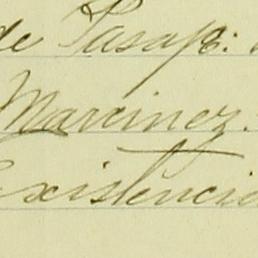 de Pasaje:
Marcinez.
Existencia